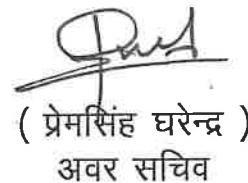 ( प्रेमसिंह घरेन्द्र )
अवर सचिव